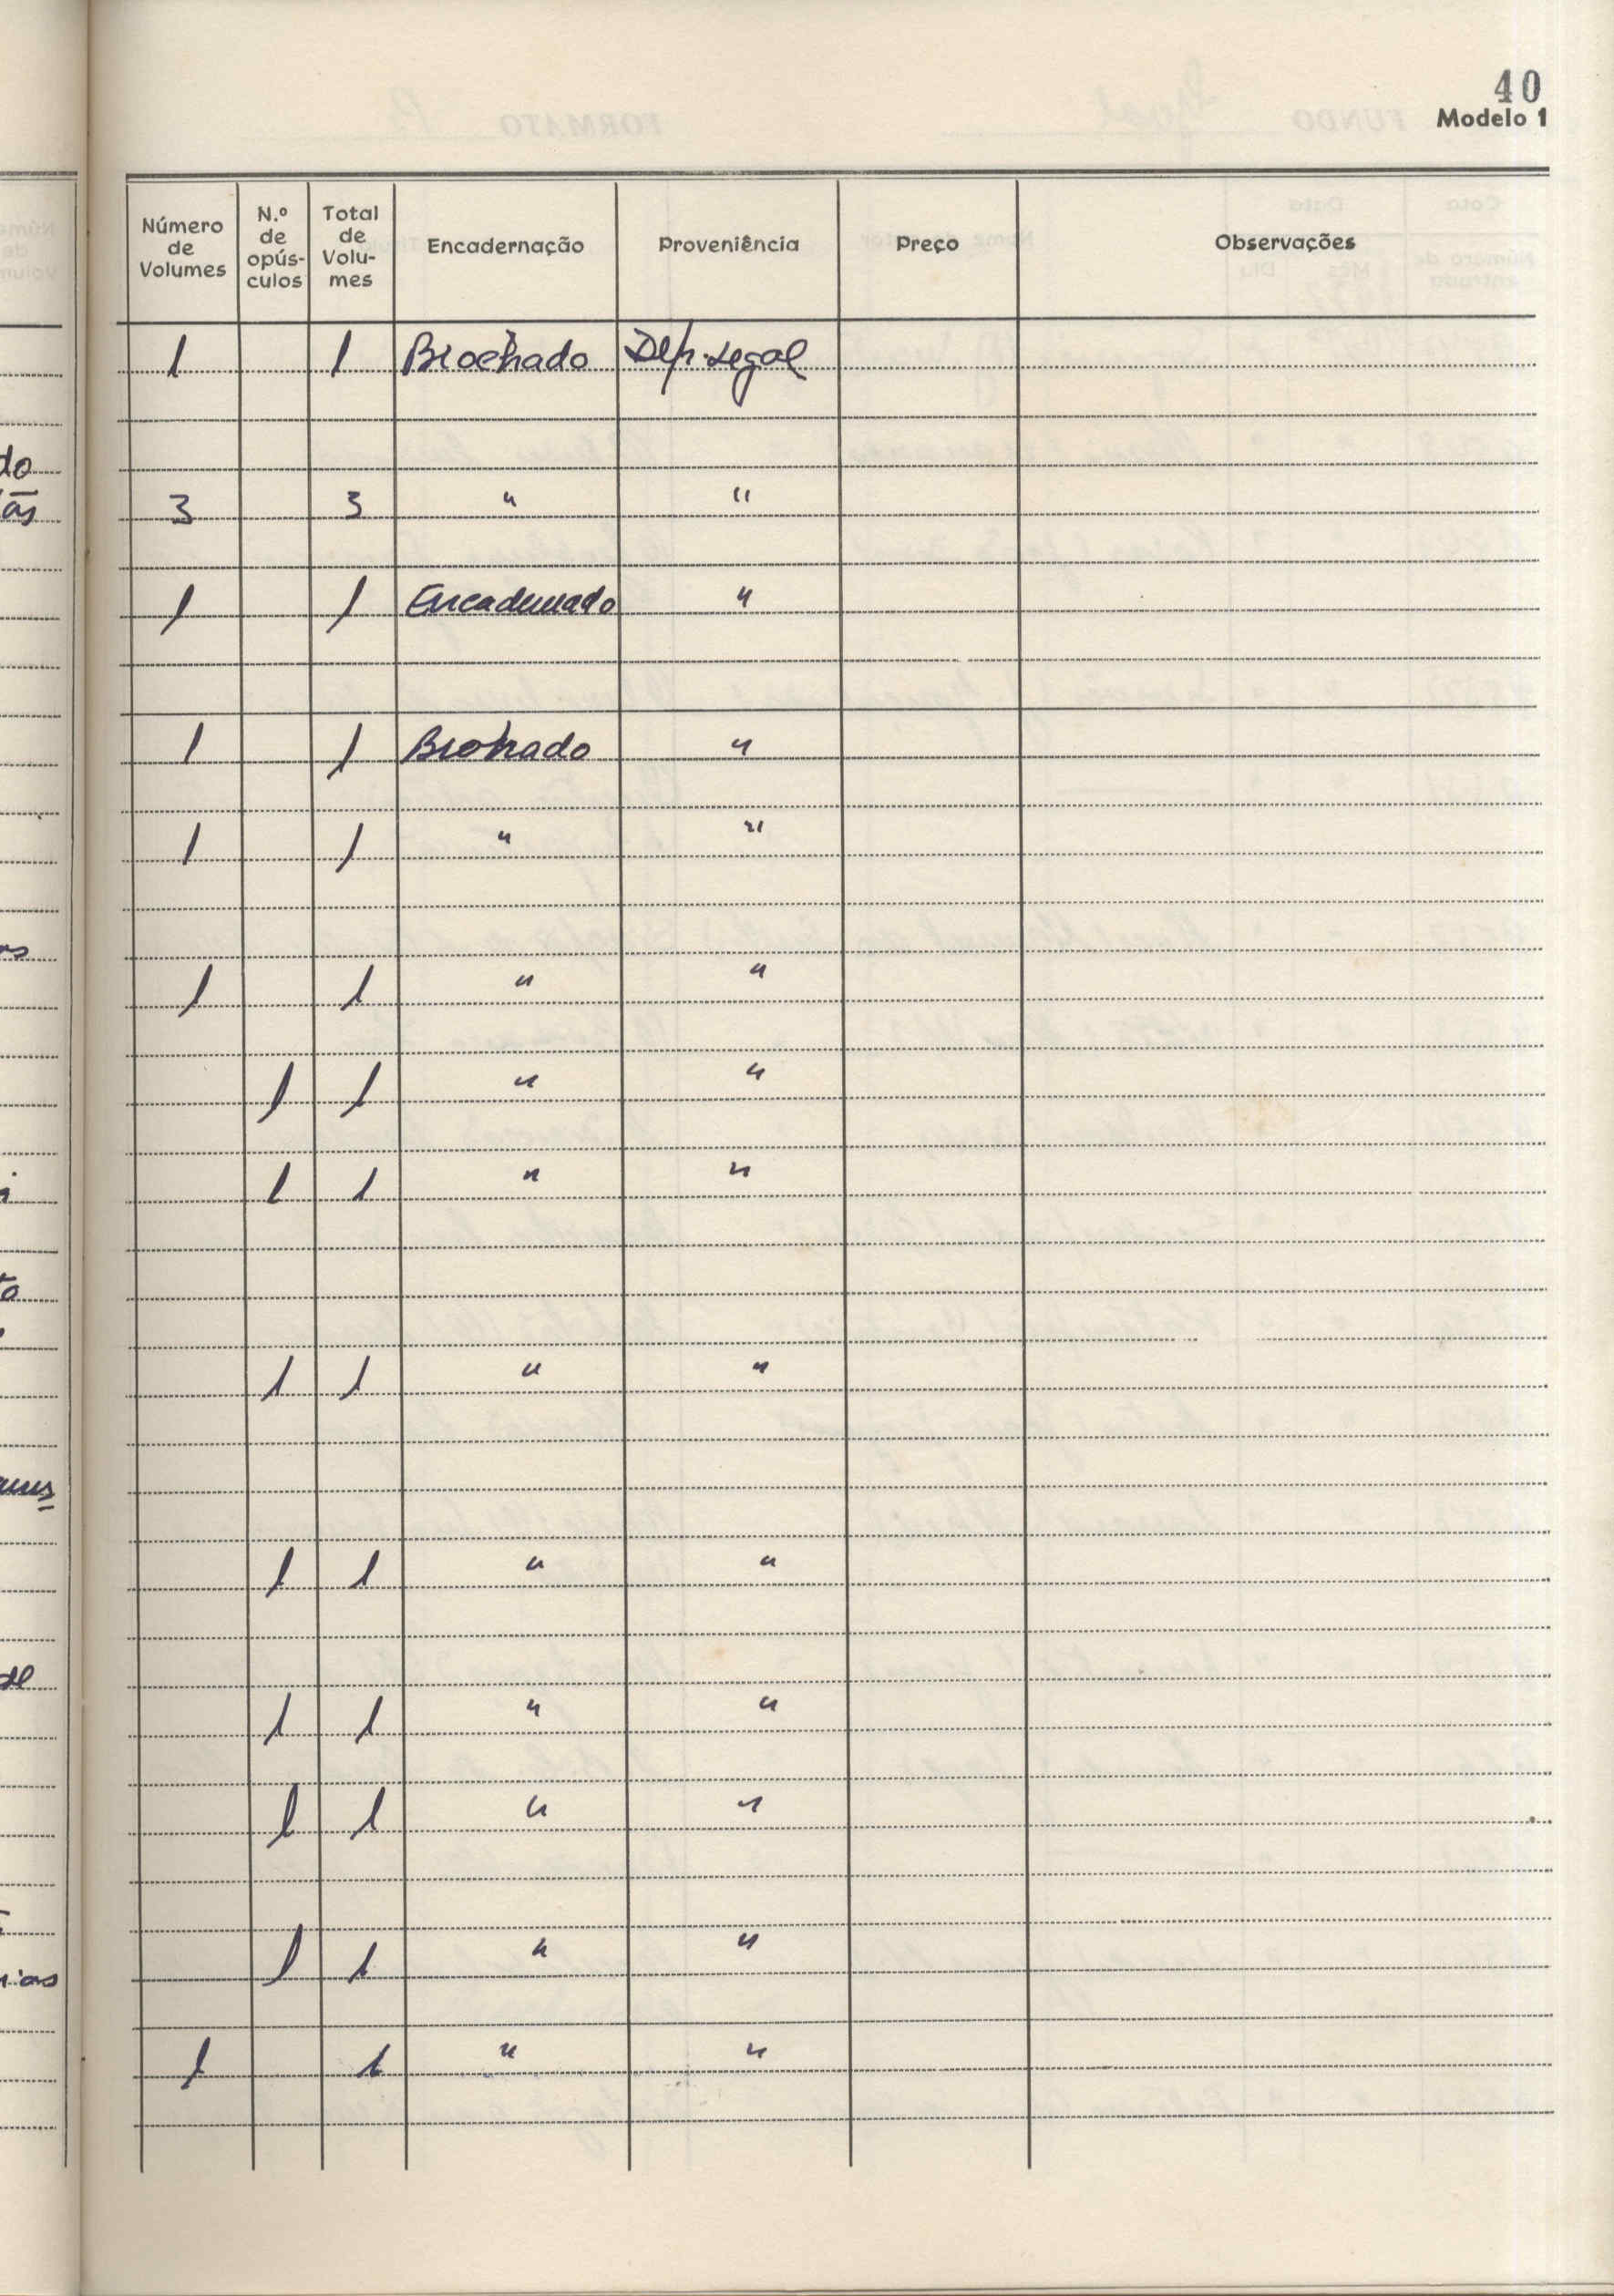 40
Modelo 1
Número de Volumes | N.º de opús-culos | Total de Volu-mes | Encadernação | Proveniência | Preço | Observações
1 | | 1 | Brochado | Dep. Legal
do
ãs
3 | | 3 | " | "
1 | | 1 | Encadernado | "
1 | | 1 | Brochado | "
1 | | 1 | " | "
1 | | 1 | " | "
| 1 | 1 | " | "
| 1 | 1 | " | "
| 1 | 1 | " | "
| 1 | 1 | " | "
de
| 1 | 1 | " | "
| 1 | 1 | " | "
| 1 | 1 | " | "
1 | | 1 | " | "